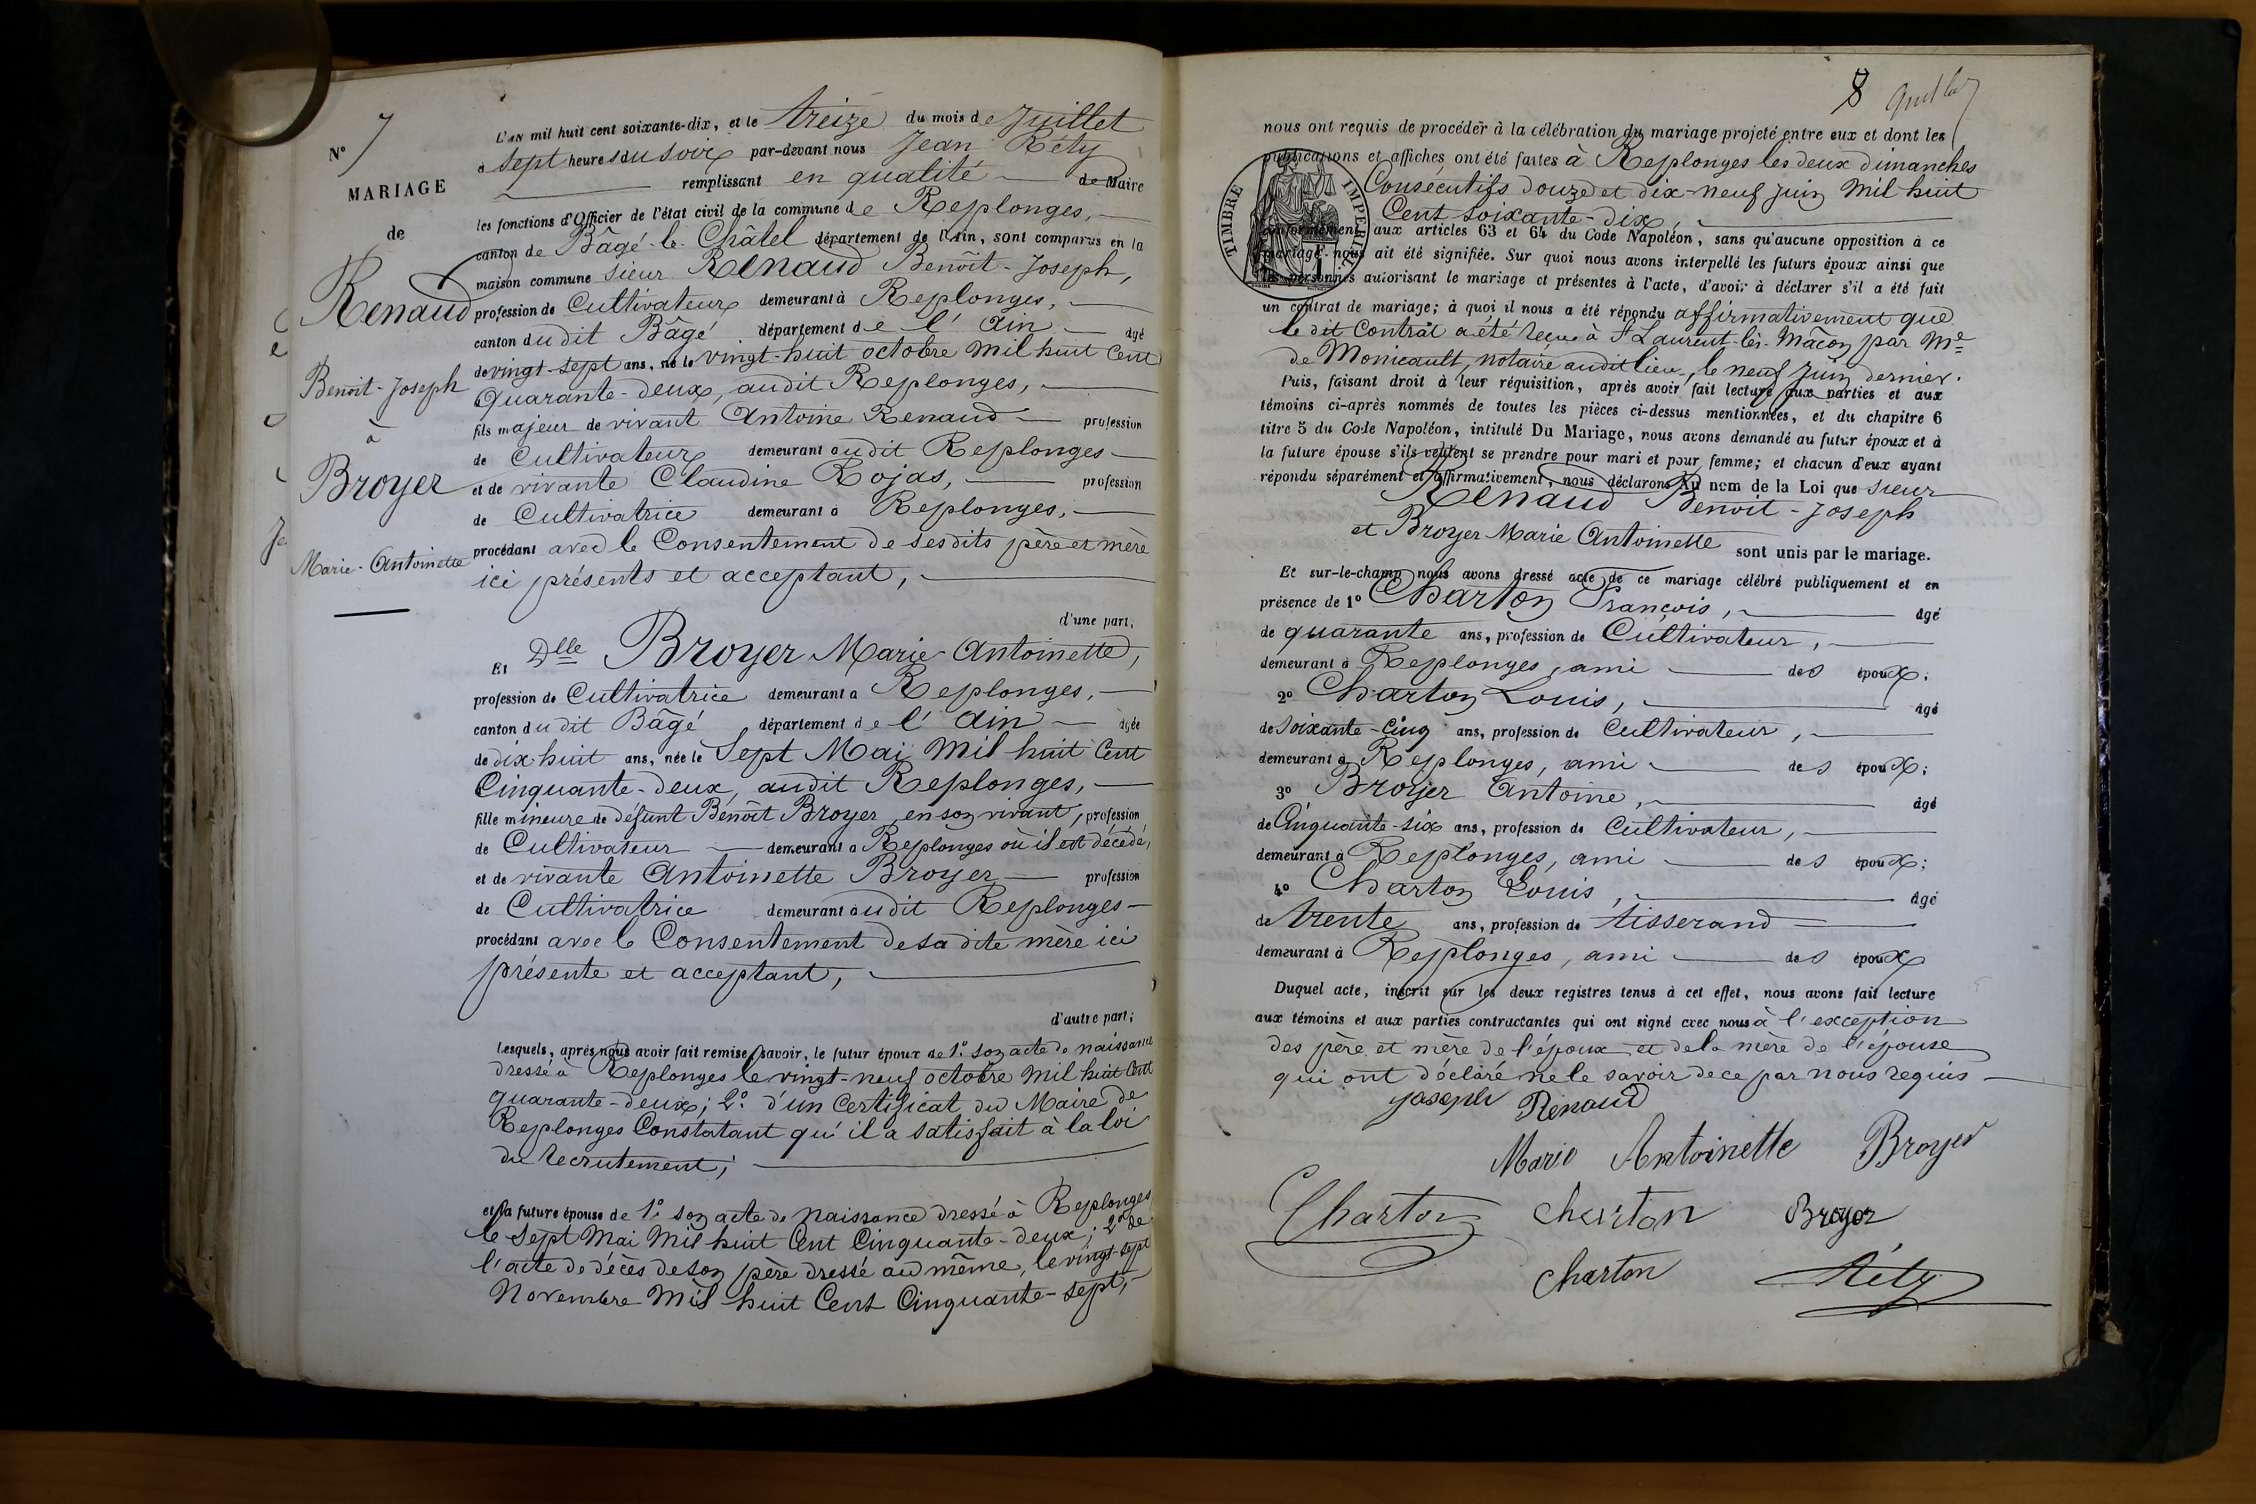 N° 7
MARIAGE
de
Renaud
Benoît-Joseph
à
Broyer
Marie-Antoinette
L'AN mil huit cent soixante-dix, et le treize du mois de Juillet
à sept heures du soir par-devant nous Jean Réty
remplissant en qualité de Maire
les fonctions d'Officier de l'état civil de la commune de Replonges,
canton de Bâgé-le-Châtel département de l'Ain, sont comparus en la
maison commune sieur Renaud Benoît-Joseph,
profession de Cultivateur demeurant à Replonges,
canton dudit Bâgé département de l'Ain âgé
de vingt-sept ans, né le vingt-huit octobre mil huit cent
quarante-deux, audit Replonges,
fils majeur de vivant Antoine Renaud profession
de Cultivateur demeurant audit Replonges
et de vivante Claudine Rojas, profession
de Cultivatrice demeurant à Replonges,
procédant avec le Consentement de sesdits père et mère
ici présents et acceptant,
d'une part,
Et Dlle Broyer Marie-Antoinette,
profession de Cultivatrice demeurant à Replonges,
canton dudit Bâgé département de l'Ain âgée
de dix huit ans, née le Sept Mai mil huit Cent
Cinquante-deux, audit Replonges,
fille mineure de défunt Benoît Broyer en son vivant, profession
de Cultivateur demeurant à Replonges où il est décédé,
et de vivante Antoinette Broyer profession
de Cultivatrice demeurant audit Replonges
procédant avec le Consentement de sa dite mère ici
présente et acceptant,
d'autre part;
Lesquels, après nous avoir fait remise, savoir, le futur époux de 1° son acte de naissance
dressé à Replonges le vingt-neuf octobre mil huit Cent
quarante-deux; 2° d'un Certificat du Maire de
Replonges Constatant qu'il a satisfait à la loi
du recrutement;
et la future épouse de 1° son acte de naissance dressé à Replonges
le Sept Mai mil huit Cent Cinquante-deux; 2° de
l'acte de décès de son père dressé au même, le vingt-sept
Novembre mil huit Cent Cinquante-sept,
8
nous ont requis de procéder à la célébration du mariage projeté entre eux et dont les
publications et affiches ont été faites à Replonges les deux dimanches
Consécutifs douze et dix-neuf juin mil huit
Cent soixante-dix,
TIMBRE IMPÉRIAL
conformément aux articles 63 et 64 du Code Napoléon, sans qu'aucune opposition à ce
mariage nous ait été signifiée. Sur quoi nous avons interpellé les futurs époux ainsi que
les personnes autorisant le mariage et présentes à l'acte, d'avoir à déclarer s'il a été fait
un contrat de mariage; à quoi il nous a été répondu affirmativement que
le dit Contrat a été reçu à St Laurent-lès-Mâcon par Me
de Monicault, notaire audit lieu, le neuf juin dernier.
Puis, faisant droit à leur réquisition, après avoir fait lecture aux parties et aux
témoins ci-après nommés de toutes les pièces ci-dessus mentionnées, et du chapitre 6
titre 5 du Code Napoléon, intitulé Du Mariage, nous avons demandé au futur époux et à
la future épouse s'ils veulent se prendre pour mari et pour femme; et chacun d'eux ayant
répondu séparément et affirmativement, nous déclarons Au nom de la Loi que sieur
Renaud Benoît-Joseph
et Broyer Marie Antoinette sont unis par le mariage.
Et sur-le-champ nous avons dressé acte de ce mariage célébré publiquement et en
présence de 1° Charton François, âgé
de quarante ans, profession de Cultivateur,
demeurant à Replonges, ami des époux;
2° Charton Louis, âgé
de Soixante-Cinq ans, profession de Cultivateur,
demeurant à Replonges, ami des époux;
3° Broyer Antoine, âgé
de Cinquante-six ans, profession de Cultivateur,
demeurant à Replonges, ami des époux;
4° Charton Louis, âgé
de trente ans, profession de tisserand
demeurant à Replonges, ami des époux
Duquel acte, inscrit sur les deux registres tenus à cet effet, nous avons fait lecture
aux témoins et aux parties contractantes qui ont signé avec nous à l'exception
des père et mère de l'époux et de la mère de l'épouse
qui ont déclaré ne le savoir de ce par nous requis
joseph Renaud
Marie Antoinette Broyer
Charton charton Broyer
Charton Réty